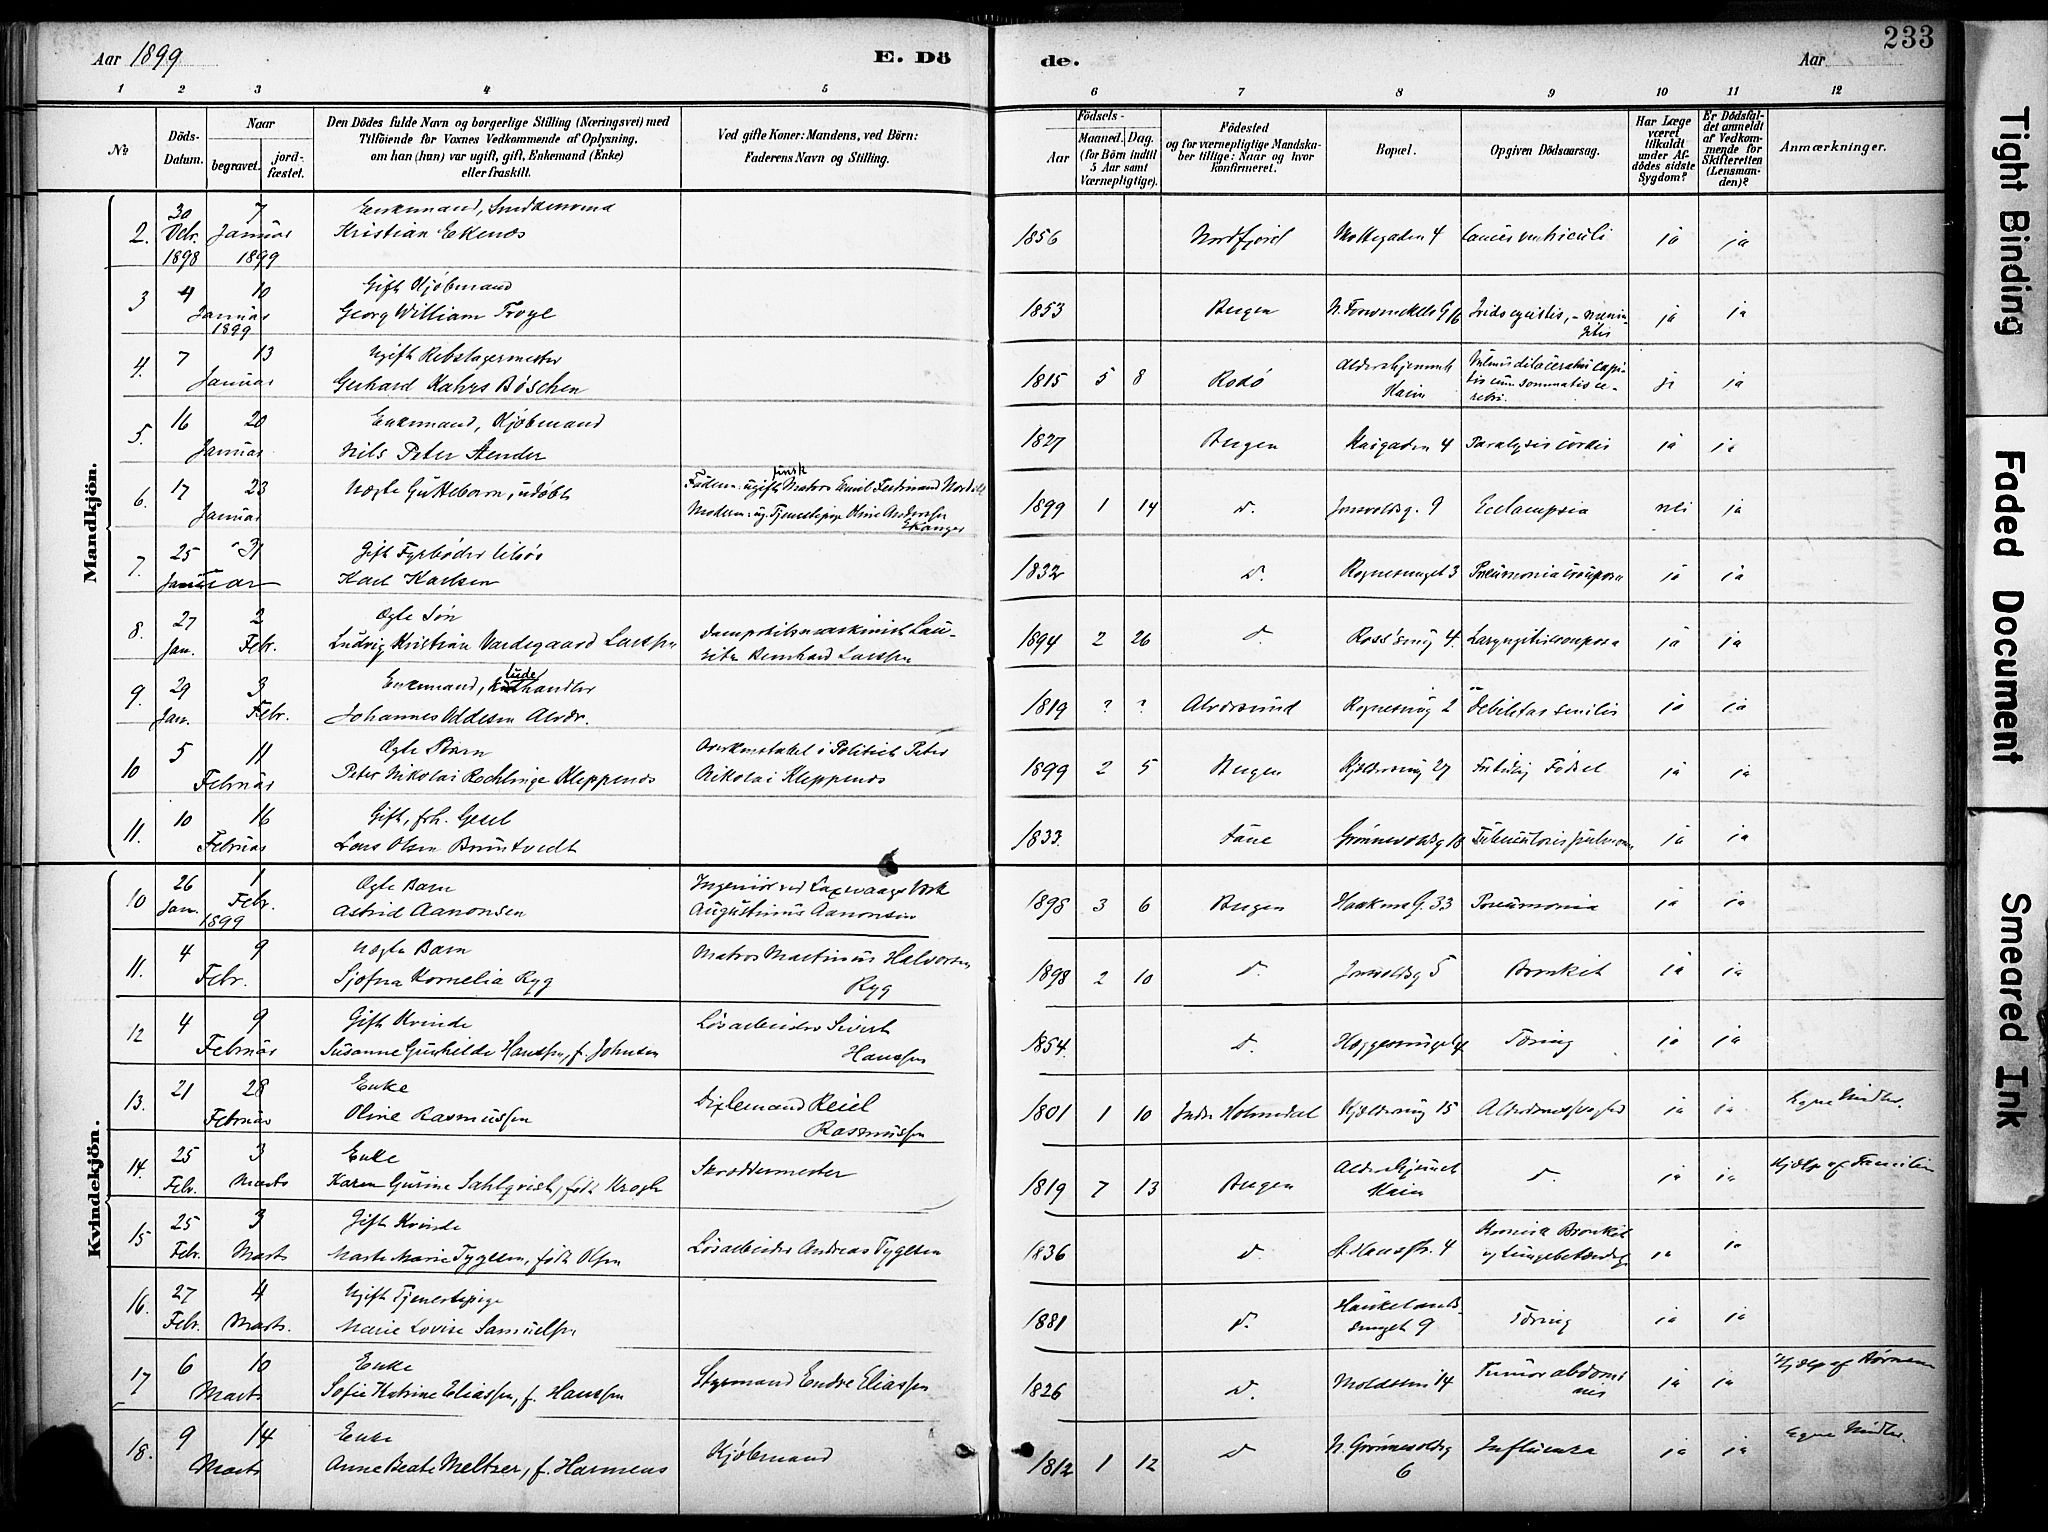 Aar 1899
E. Dö
de.
Aar
233
1 2 3 4 5 6 7 8 9 10 11 12
No
Döds-Datum.
Naar
begravet.
jord-fæstet.
Den Dödes fulde Navn og borgerlige Stilling (Næringsvei) med
Tilföiende for Voxnes Vedkommende af Oplysning,
om han (hun) var ugift, gift, Enkemand (Enke)
eller fraskilt.
Ved gifte Koner: Mandens, ved Börn:
Faderens Navn og Stilling.
Födsels-
Aar
Maaned.
Dag.
(for Börn indtil
5 Aar samt
Værnepligtige).
Födested
og for værnepligtige Mandska-
ber tillige: Naar og hvor
konfirmeret.
Bopæl.
Opgiven Dödsaarsag.
Har Læge
været
tilkaldt
under Af-
dödes sidste
Sygdom?
Er Dödsfal-
det anmeldt
af Vedkom-
mende for
Skifteretten
(Lensman-
den)?
Anmærkninger.
Mandkjön.
2. 30 Decbr. 1898 7 Januar 1899 Enkemand,
Kristian Ekenæs 1856 Nordfjord 4 ja ja
3 4 10 Januar 1899 Gift Kjøbmand
Georg William Troye 1853 Bergen 16 ja ja
4. 7 13 Januar Ugift Rebslagermester
Gerhard Kahrs Böschen 1815 5 8 Rodö Aldershjemmet ja ja
5. 16 20 Januar Enkemand, Kjøbmand
Nils Peter Stender 1827 Bergen 4 Paralysis cordis ja ja
6. 17 23 Januar Uægte Guttebarn, udøbt Faderen: ugift finsk Matros Emil Ferdinand
Moderen: ug. Tjenestepige Oline Andersen Ekanger 1899 1 14 d. Jonsvoldsg. 9 Eclampsia nei ja
7. 25 31 Januar Gift Fyrbøder
Karl Karlsen 1832 d. 3 Pneumonia crouposa ja ja
8. 27 Jan. 2 Febr. Ægte Søn
Ludvig Kristian Vardegaard Larssen Dampskibsmaskinist Lau-
ritz Bernhard Larssen 1894 2 26 d. 4. Laryngitis crouposa ja ja
9. 29 Jan. 3 Febr. Enkemand, Kludehandler
Johannes Oddesen Alvær. 1819 ? ? Alversund 2 Debilitas senilis ja ja
10 5 11 Februar Ægte Barn
Peter Nikolai Rechlinge Kleppenæs Overkonstabel i Politiet Peter
Nikolai Kleppenæs 1899 2 5 Bergen 27 For tidlig Fødsel ja ja
11. 10 16 Februar Gift, frh. Gesel
Lars Olsen Bruntvedt 1833. Fane Grønnevoldsg 18 ja ja
Kvindekjön.
10 26 Jan. 1 Febr. 1899 Ægte Barn
Astrid Aanonsen Ingeniør ved Laxevaags Værk
Augustinus Aanonsen 1898 3 6 Bergen Haakons G. 33 Pneumonia ja ja
11. 4 9 Febr. Uægte Barn
Sjofna Kornelia Ryg Matros Martinius Halvorsen
Ryg 1898 2 10 d. Jonsvoldsg 5 Bronkit ja ja
12 4 9 Februar Gift Kvinde
Susanne Gunhilde Hanssen, f. Johnsen Løsarbeider Sivert
Hanssen 1854. d. Tæring ja ja
13. 21 28 Februar Enke
Oline Rasmussen Dixlemand Reiel
Rasmussen 1801 1 10 Indre Holmedal 15 Alderdomssvaghed ja ja Egne Midler.
14. 25 Febr. 3 Marts Enke
Karen Gurine Sahlqvist, født Krogh Skræddermester 1819 7 13 Bergen Aldershjemmet d. ja ja Hjælp af Familien
15 25 Febr. 3 Marts Gift Kvinde
Marte Marie Tygesen, født Olsen Løsarbeider Andreas Tygesen 1836 d St. Hansstr. 4 Kronisk Bronkit
og Lungebetændelse ja ja
16. 27 Febr. 4 Marts. Ugift Tjenestepige
Marie Lovise Samuelsen 1881 d. Haukelands-
smuget 9 Tæring ja ja
17 6 10 Marts Enke
Sofie Katrine Eliassen, f. Hanssen Styrmand Endre Eliassen 1826 d. 14 Tumor abdomi-
nis ja ja Hjælp af Børnene
18. 9 14 Marts Enke
Anne Beate Meltzer, f. Harmens Kjøbmand 1812 1 12 d N. Grønnevoldsg
6 Influenza ja ja Egne Midler.
Tight Binding
Faded Document
Smeared Ink